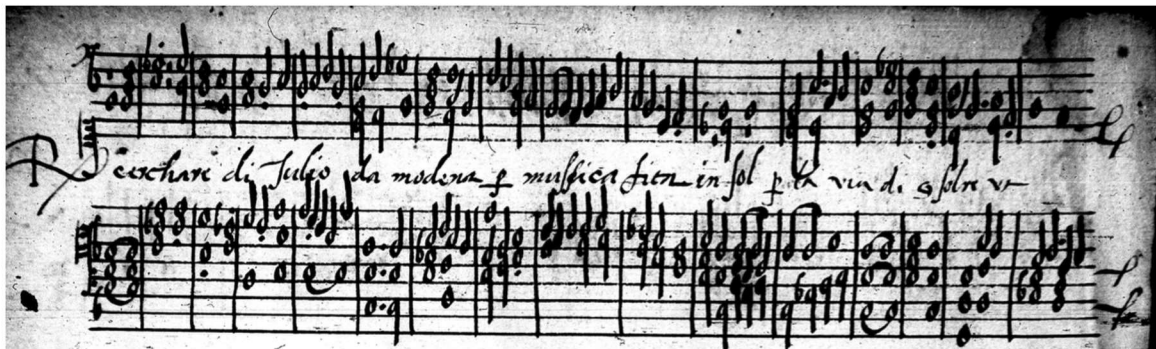 Recerchare di Julio da modena p musica ficta in sol p la via di g solre ut